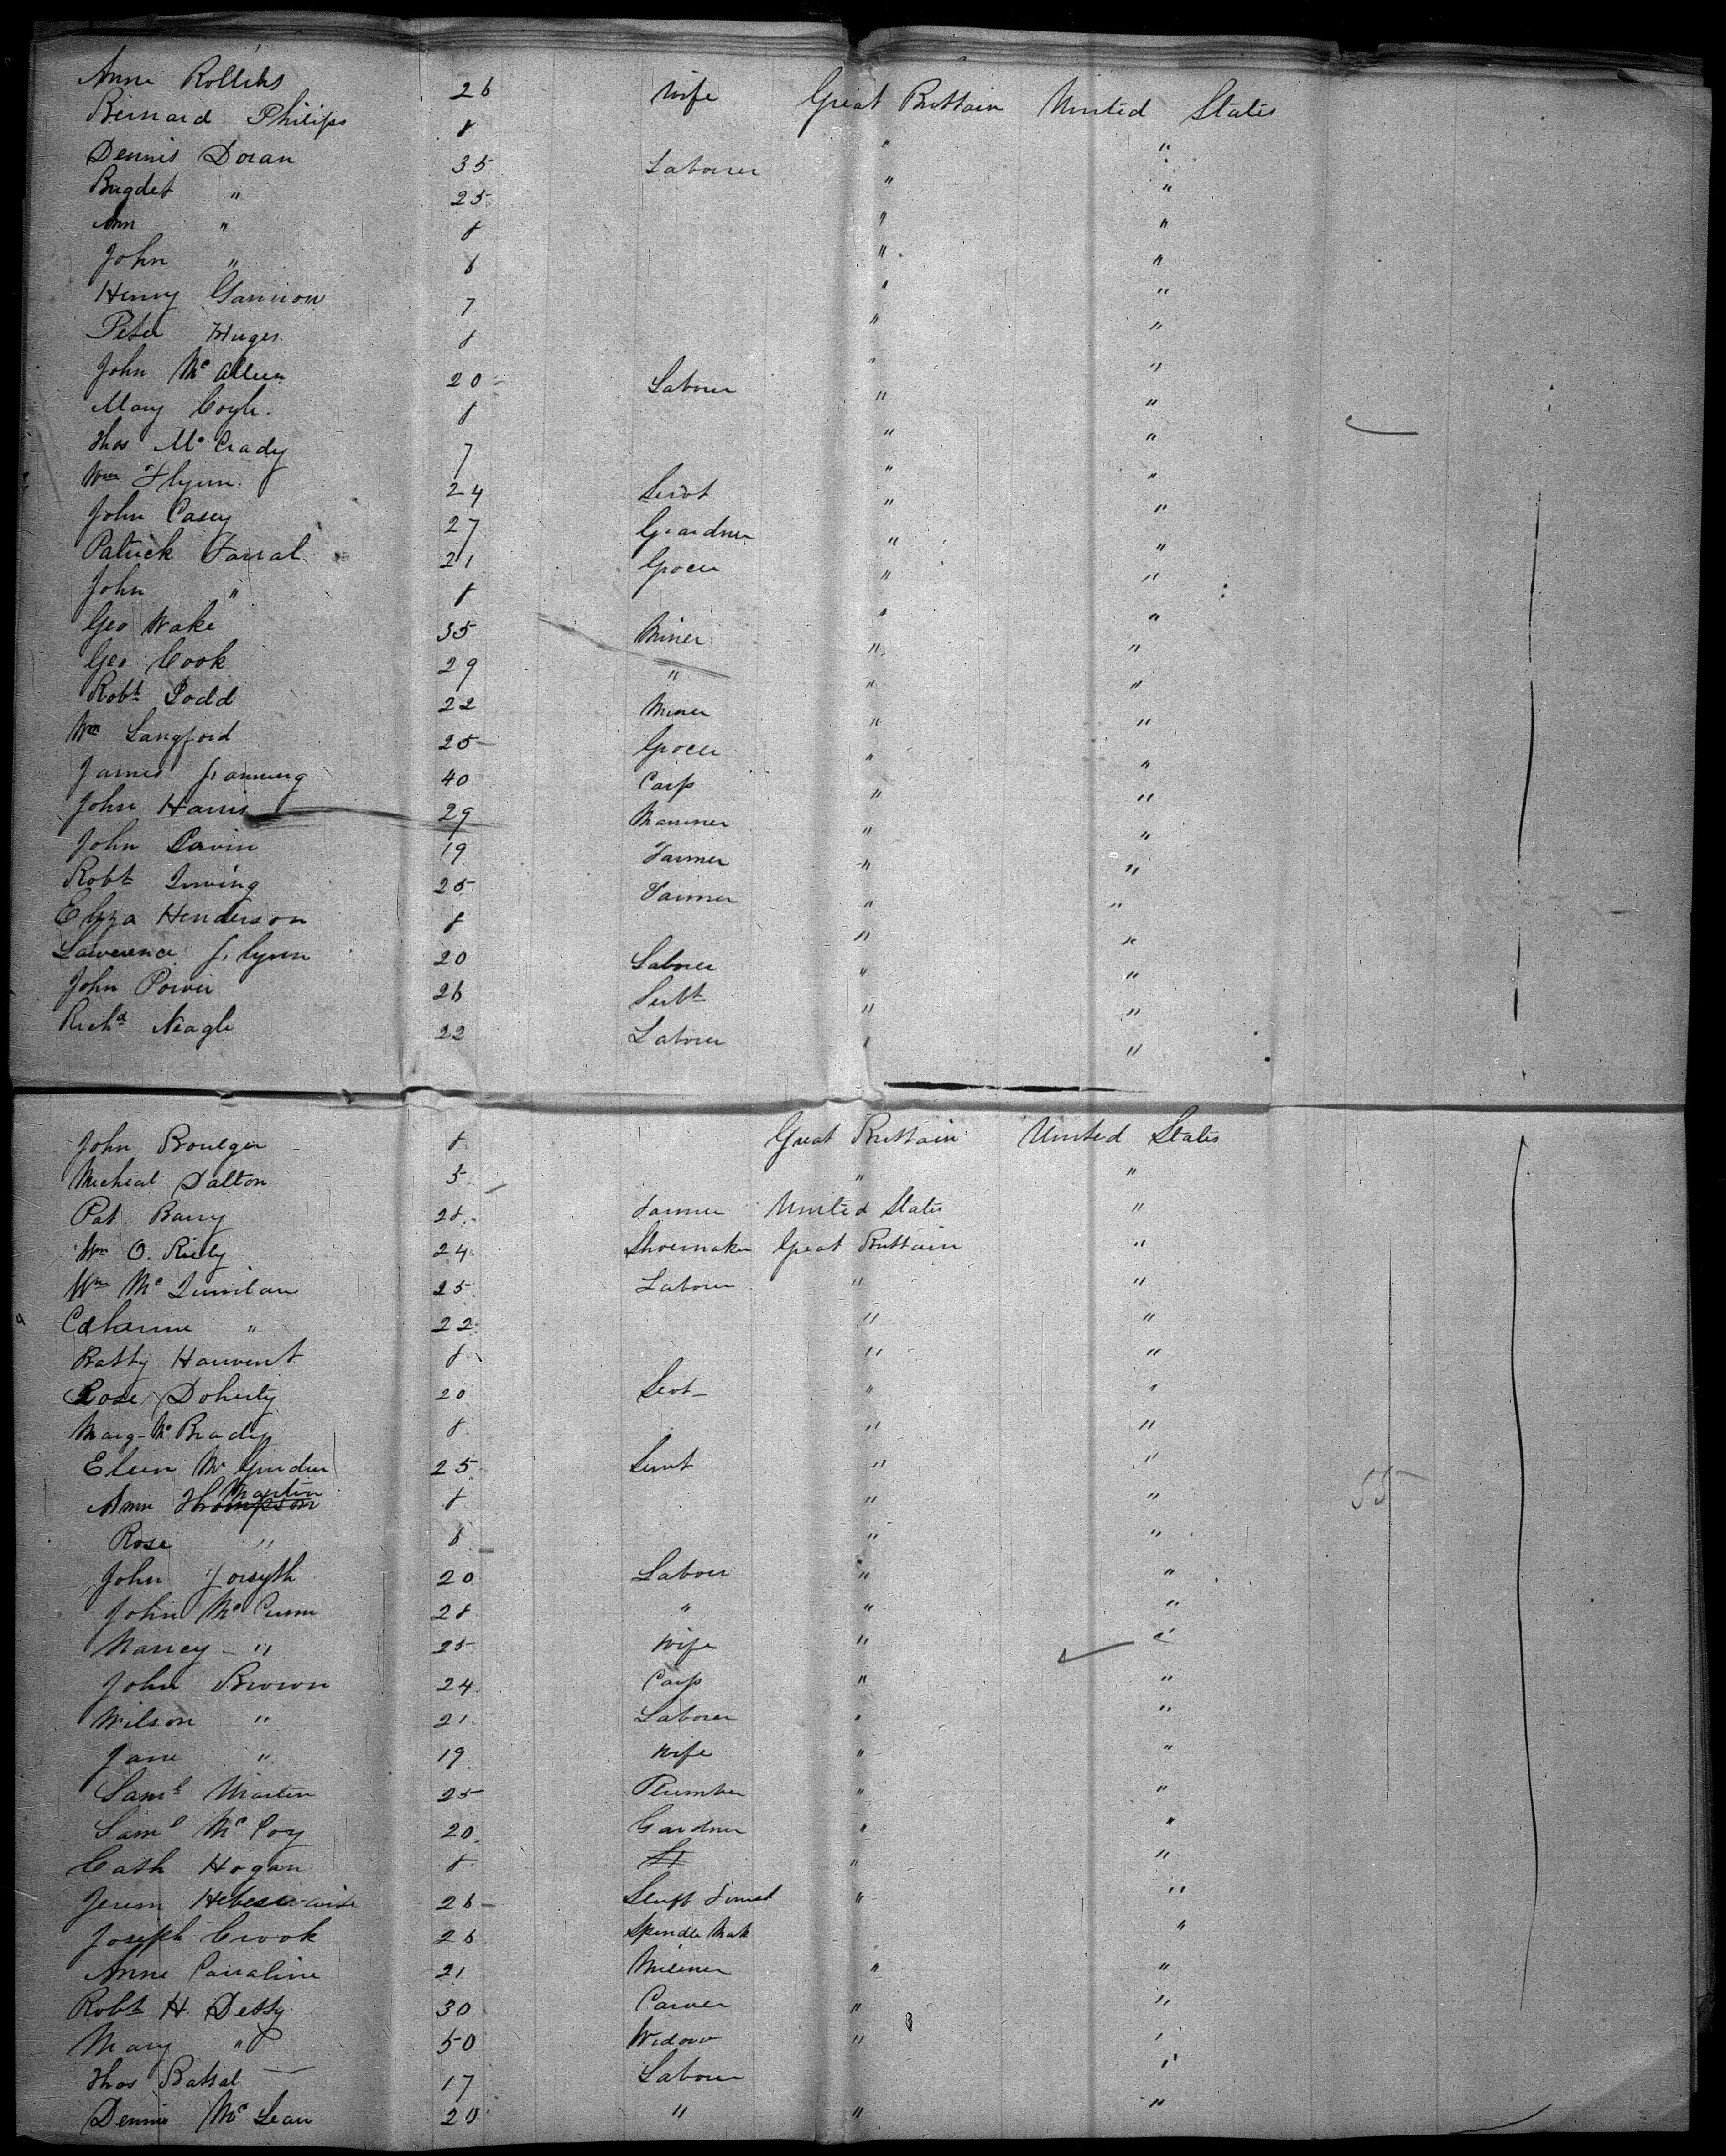 Anne Rollins 26 Wife Great Brittain United States
Bernard Philips 8 " "
Dennis Doran 35 Labourer " "
Brigdet " 25 " "
Ann " 8 " "
John " 6 " "
Henry Gannon 7 " "
Peter Huges 8 " "
John Mc Allen 20 Labour " "
Mary Coyle. 8 " "
Thos Mc Crady 7 " "
Wm Flynn. 24 Servt " "
John Casey 27 Gardner " "
Patrick Farral 21 Grocer " "
John " 8 " "
Geo Wake 35 Miner " "
Geo Cook 29 " " "
Robt Dodd 22 Miner " "
Wm Langford 25 Grocer " "
James Fanning 40 Carp " "
John Harris 29 Marriner " "
John Davin 19 Farmer " "
Robt Irving 25 Farmer " "
Eliza Henderson 8 " "
Lawerence Flynn 20 Laborer " "
John Power 26 Servt " "
Richd Neagle 22 Laborer " "
John Boulger 8 Great Brittain United States
Micheal Dalton 5 " "
Pat. Barry 28. Farmer United States "
Wm O. Riely 24 Shoemaker Great Brittain "
Wm Mc Quinlan 25 Laborer " "
Catherine " 22 " "
Batty 8 " "
Rose Doherty 20 Servt " "
Marg- Mc Brady 8 " "
Elein Mc 25 Servt " "
Anne Thompson Martin 8 " "
Rose " 6 " "
John Forsyth 20 Labour " "
John Mc Cunn 28 " " "
Nancy " 25 Wife " "
John Brown 24 Carp " "
Wilson " 21 Laborer " "
Jane " 19 Wife " "
Saml Martin 25 Plumber " "
Saml Mc Coy 20 Gardner " "
Cath Hogan 8 " "
Jerem 26 " "
Joseph Crook 26 Spindle Mak "
Anne Carraline 21 Miliner " "
Robt H. Detty 30 Carver " "
Mary " 50 Widow " "
Thos Batsal 17 Labour "
Dennis Mc Lean 20 " " "
55